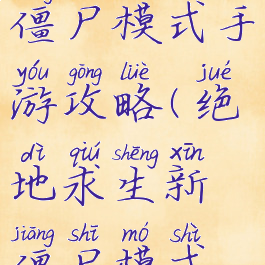 僵尸模式手
yóu gōng lüè jué
游攻略(绝
dì qiú shēng xīn
地求生新
jiāng shī mó shì
僵尸模式